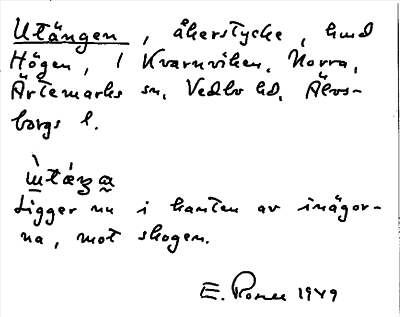 Utängen, åkerstycke, hmd
Högen, 1 Kvarnviken. Norra,
Ärtemarks sn, Vedbo hd, Älvs-
borgs l.
Ligger nu i kanten av inägor-
na, mot skogen.
E. 1949